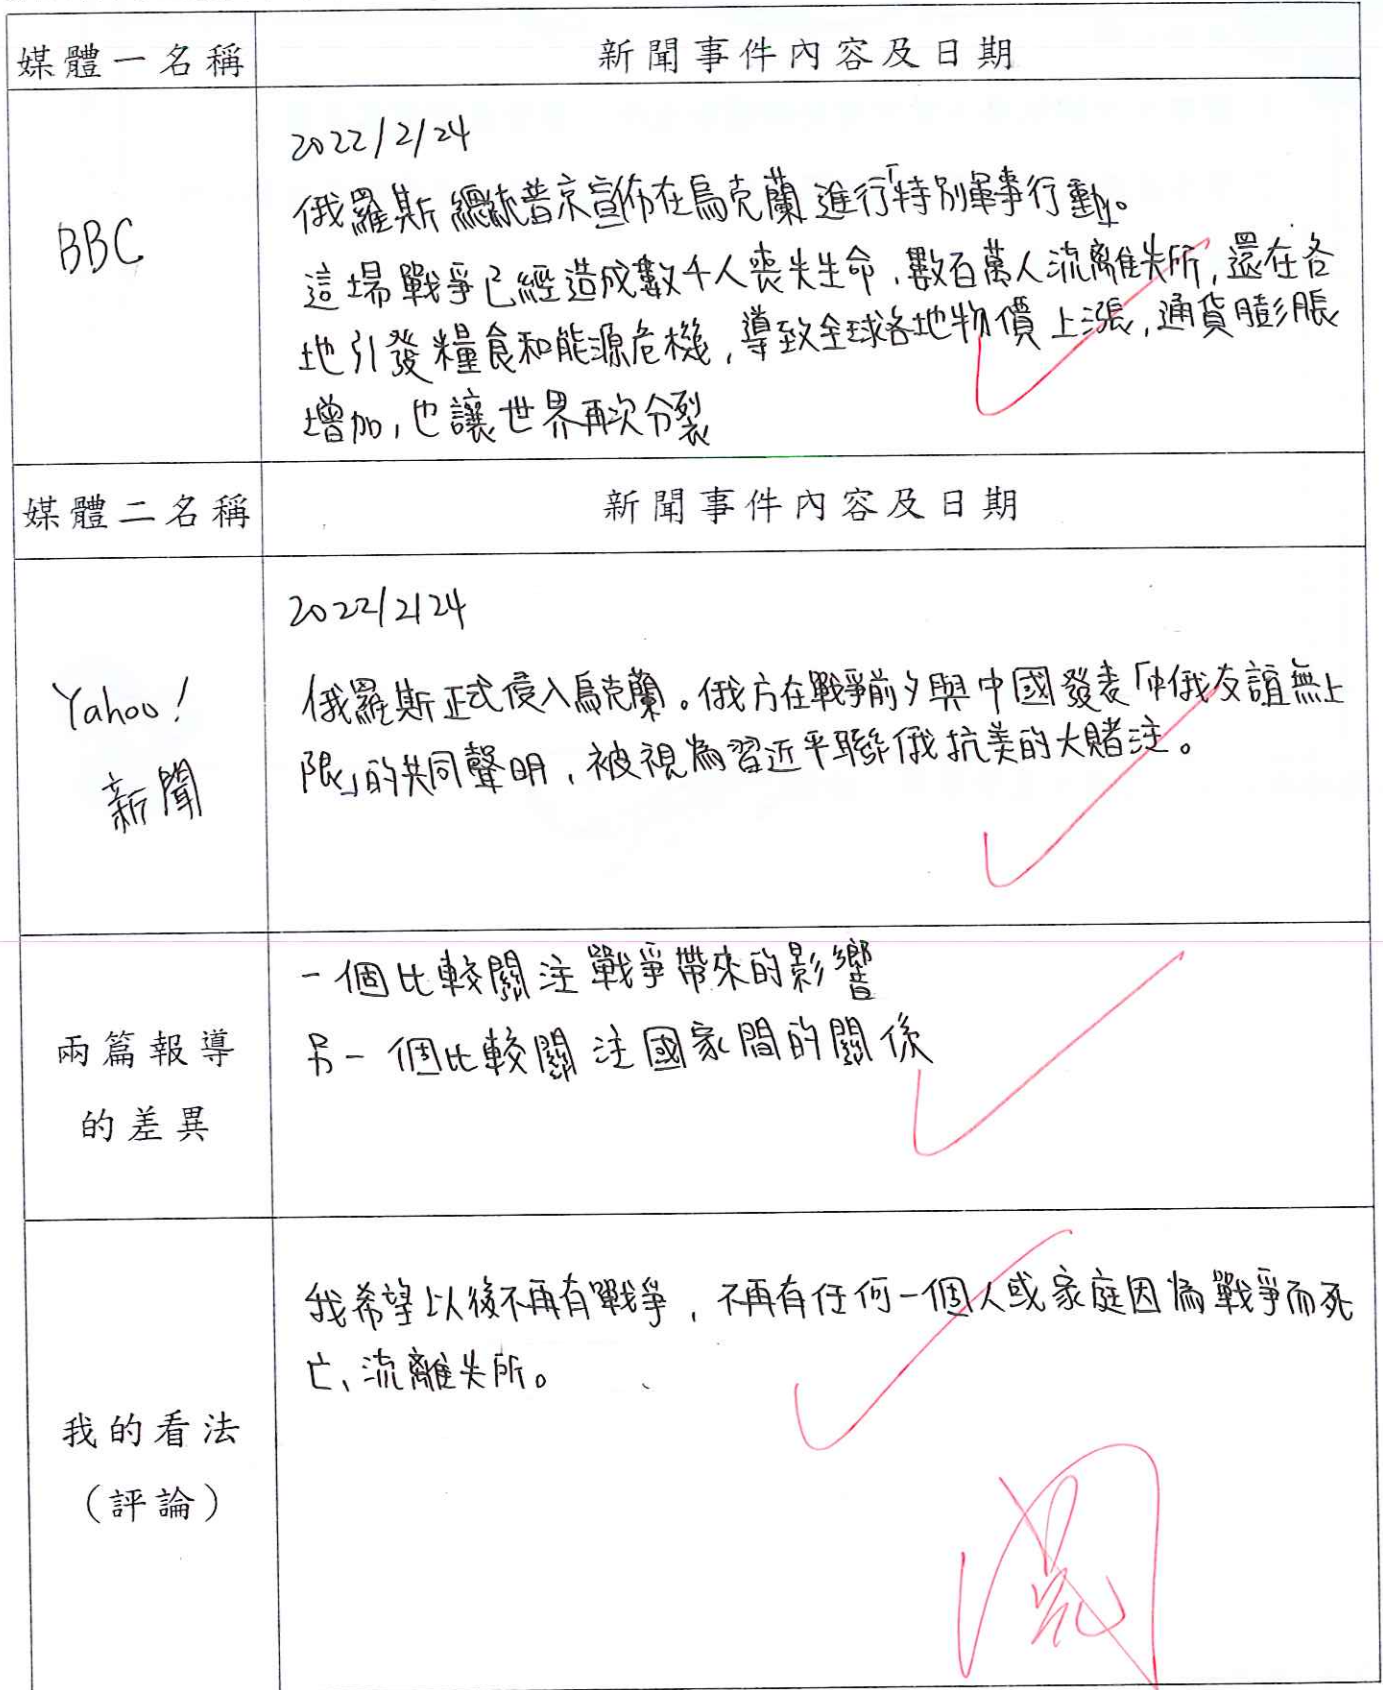 媒體一名稱
新聞事件內容及日期
BBC
2022/2/24
俄羅斯總統普京宣佈在烏克蘭進行「特別軍事行動」。
這場戰爭已經造成數千人喪失生命，數百萬人流離失所，還在各
地引發糧食和能源危機，導致全球各地物價上漲，通貨膨脹
增加，也讓世界再次分裂
媒體二名稱
新聞事件內容及日期
Yahoo!
新聞
2022/2/24
俄羅斯正式侵入烏克蘭。俄方在戰爭前夕與中國發表「中俄友誼無上
限」的共同聲明，被視為習近平聯俄抗美的大賭注。
兩篇報導
的差異
一個比較關注戰爭帶來的影響
另一個比較關注國家間的關係
我的看法
（評論）
我希望以後不再有戰爭，不再有任何一個人或家庭因為戰爭而死
亡、流離失所。
閱